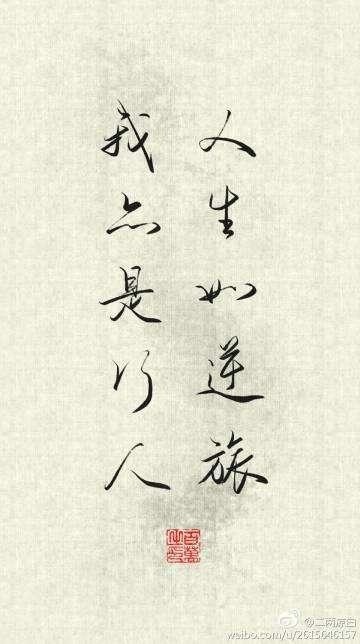 人生如逆旅
我亦是行人
weibo.com/u/2615046157